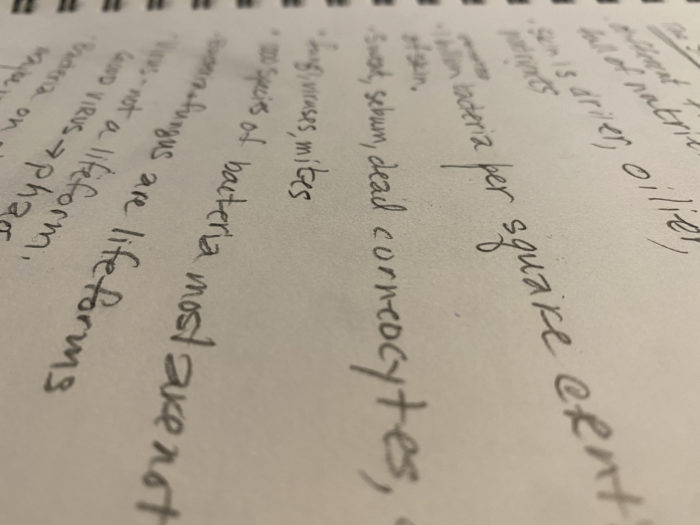 different
full of nutrie
· skin is drier, oilier,
particles
· 1 billion bacteria per square cent
of skin.
· Sweat, sebum, dead corneocytes,
· fungi, viruses, mites
· 100 species of bacteria most are not
· Bacteria + fungus are lifeforms
· Virus - not a lifeform.
virus → phage
Bacteria on